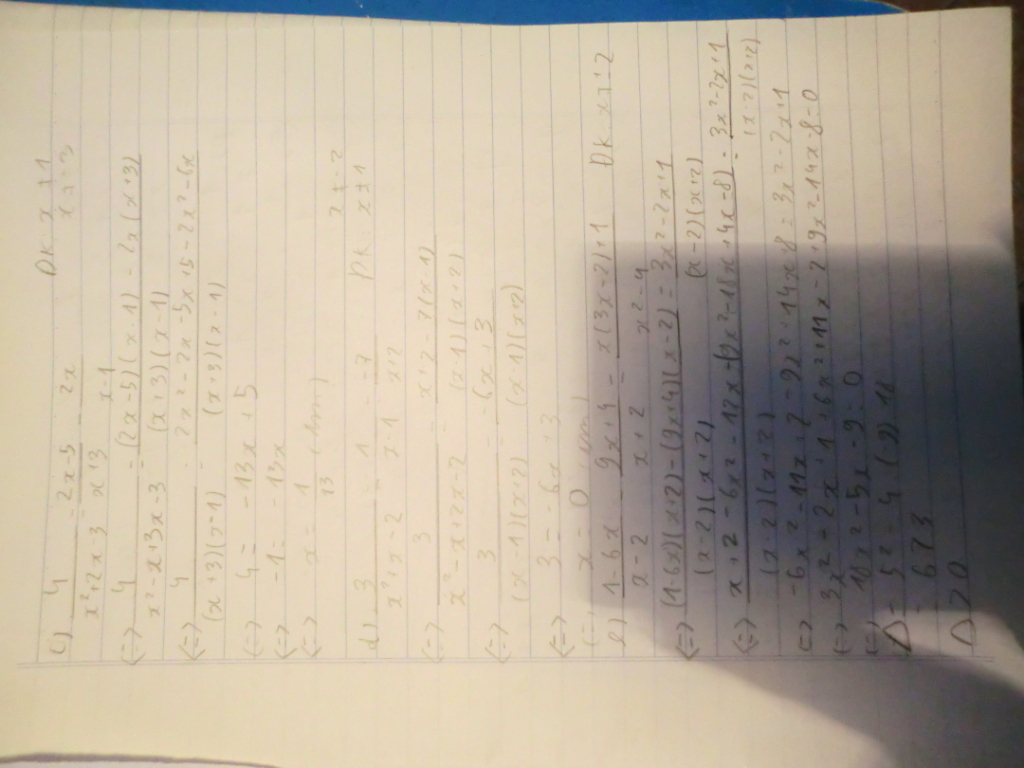 c) 4/(x²+2x-3) = (2x-5)/(x+3) - 2x/(x-1) ĐK: x ≠ 1
x ≠ -3
<=> 4/(x²-x+3x-3) = ((2x-5)(x-1) - 2x(x+3))/((x+3)(x-1))
<=> 4/((x+3)(x-1)) = (2x²-2x-5x+5-2x²-6x)/((x+3)(x-1))
<=> 4 = -13x+5
<=> -1 = -13x
<=> x = 1/13
d) 3/(x²+x-2) = 1/(x-1) - 7/(x+2) ĐK: x ≠ 1
x ≠ -2
<=> 3/(x²-x+2x-2) = (x+2-7(x-1))/((x-1)(x+2))
<=> 3/((x-1)(x+2)) = (-6x+3)/((x-1)(x+2))
<=> 3 = -6x+3
<=> x = 0
(1-6x)/(x-2) - (9x+4)/(x+2) = (x(3x-2)+1)/(x²-4) ĐK x ≠ ±2
<=> ((1-6x)(x+2)-(9x+4)(x-2))/((x-2)(x+2)) = (3x²-2x+1)/((x-2)(x+2))
<=> (x+2-6x²-12x-(9x²-18x+4x-8))/((x-2)(x+2)) = (3x²-2x+1)/((x-2)(x+2))
<=> -6x²-11x+2-9x²-14x8=3x²-2x+1
<=> 3x²+2x+1+6x²+11x-2+9x²-14x-8=0
<=> 18x²-5x-9=0
Δ = 5²-4.(-9).18
= 673
Δ > 0